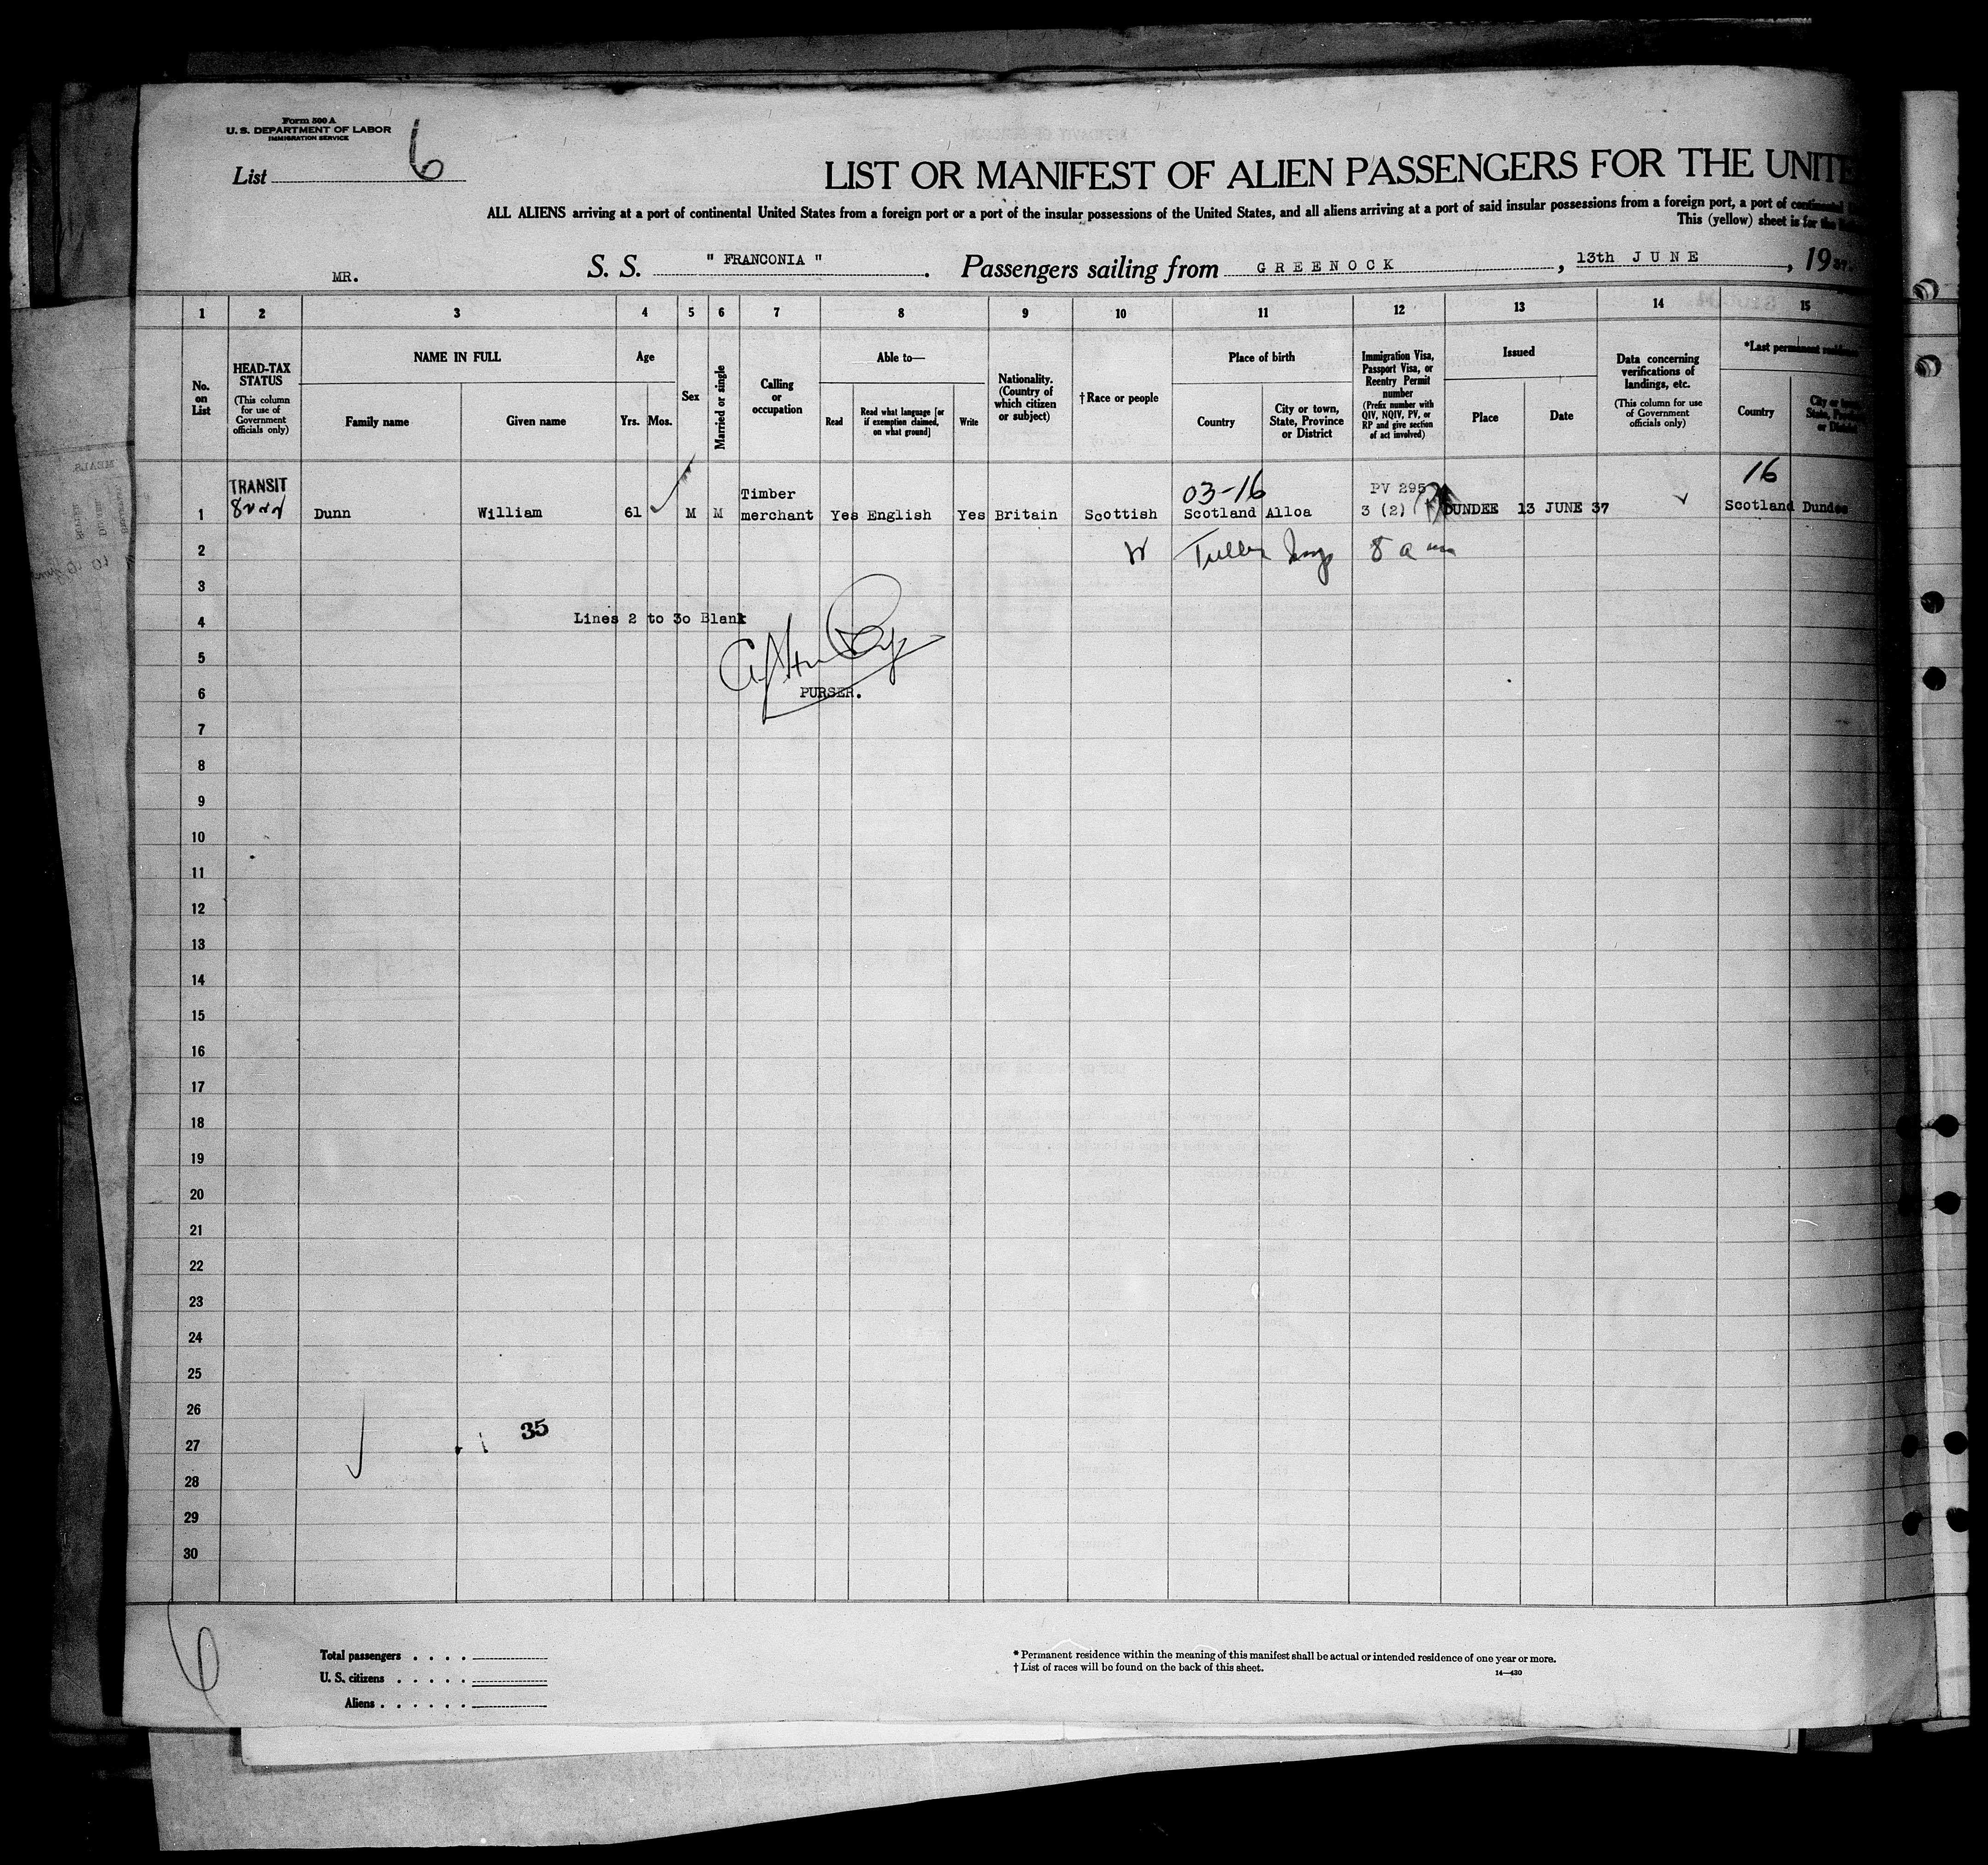 Form 500 A
U. S. DEPARTMENT OF LABOR
IMMIGRATION SERVICE
List 6
LIST OR MANIFEST OF ALIEN PASSENGERS FOR THE UNITE
ALL ALIENS arriving at a port of continental United States from a foreign port or a port of the insular possessions of the United States, and all aliens arriving at a port of said insular possessions from a foreign port, a port of continental
This (yellow) sheet is for the
MR. S. S. " FRANCONIA " . Passengers sailing from GREENOCK , 13th JUNE , 1937.
1 2 3 4 5 6 7 8 9 10 11 12 13 14 15
No. on List
HEAD-TAX STATUS (This column for use of Government officials only)
NAME IN FULL
Family name
Given name
Age
Yrs. Mos.
Sex
Married or single
Calling or occupation
Able to—
Read
Read what language [or if exemption claimed, on what ground]
Write
Nationality. (Country of which citizen or subject)
†Race or people
Place of birth
Country
City or town, State, Province or District
Immigration Visa, Passport Visa, or Reentry Permit number (Prefix number with QIV, NQIV, PV, or RP and give section of act involved)
Issued
Place
Date
Data concerning verifications of landings, etc. (This column for use of Government officials only)
*Last permanent residence
Country
City or town, State, Province or District
TRANSIT Timber 03-16 PV 295 16
1 Dunn William 61 M M merchant Yes English Yes Britain Scottish Scotland Alloa 3 (2) DUNDEE 13 JUNE 37 Scotland Dundee
2 8 a m
3
4 Lines 2 to 30 Blank
5
6 PURSER.
7
8
9
10
11
12
13
14
15
16
17
18
19
20
21
22
23
24
25
26
27 35
28
29
30
6
Total passengers . . . .
U. S. citizens . . . . .
Aliens . . . . . .
* Permanent residence within the meaning of this manifest shall be actual or intended residence of one year or more.
† List of races will be found on the back of this sheet.
14—430